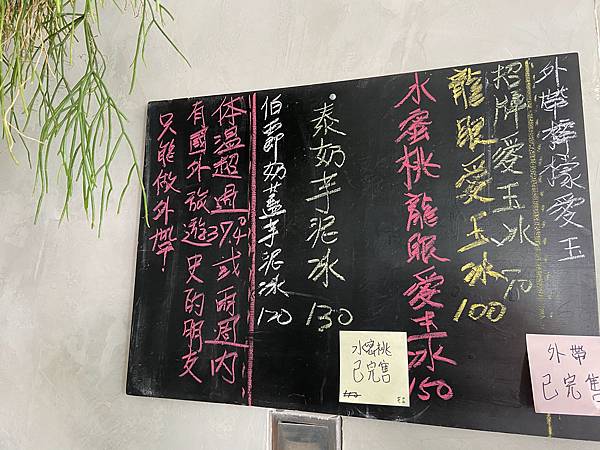 外帶檸檬愛玉
招牌愛玉冰 70
龍眼愛玉冰100
水蜜桃龍眼愛玉冰150
泰奶芋泥冰 130
伯爵奶蓋芋泥冰 120
体溫超過37.4或兩周内
有國外旅遊史的朋友
只能做外帶!
水蜜桃
已完售
外帶
已完售